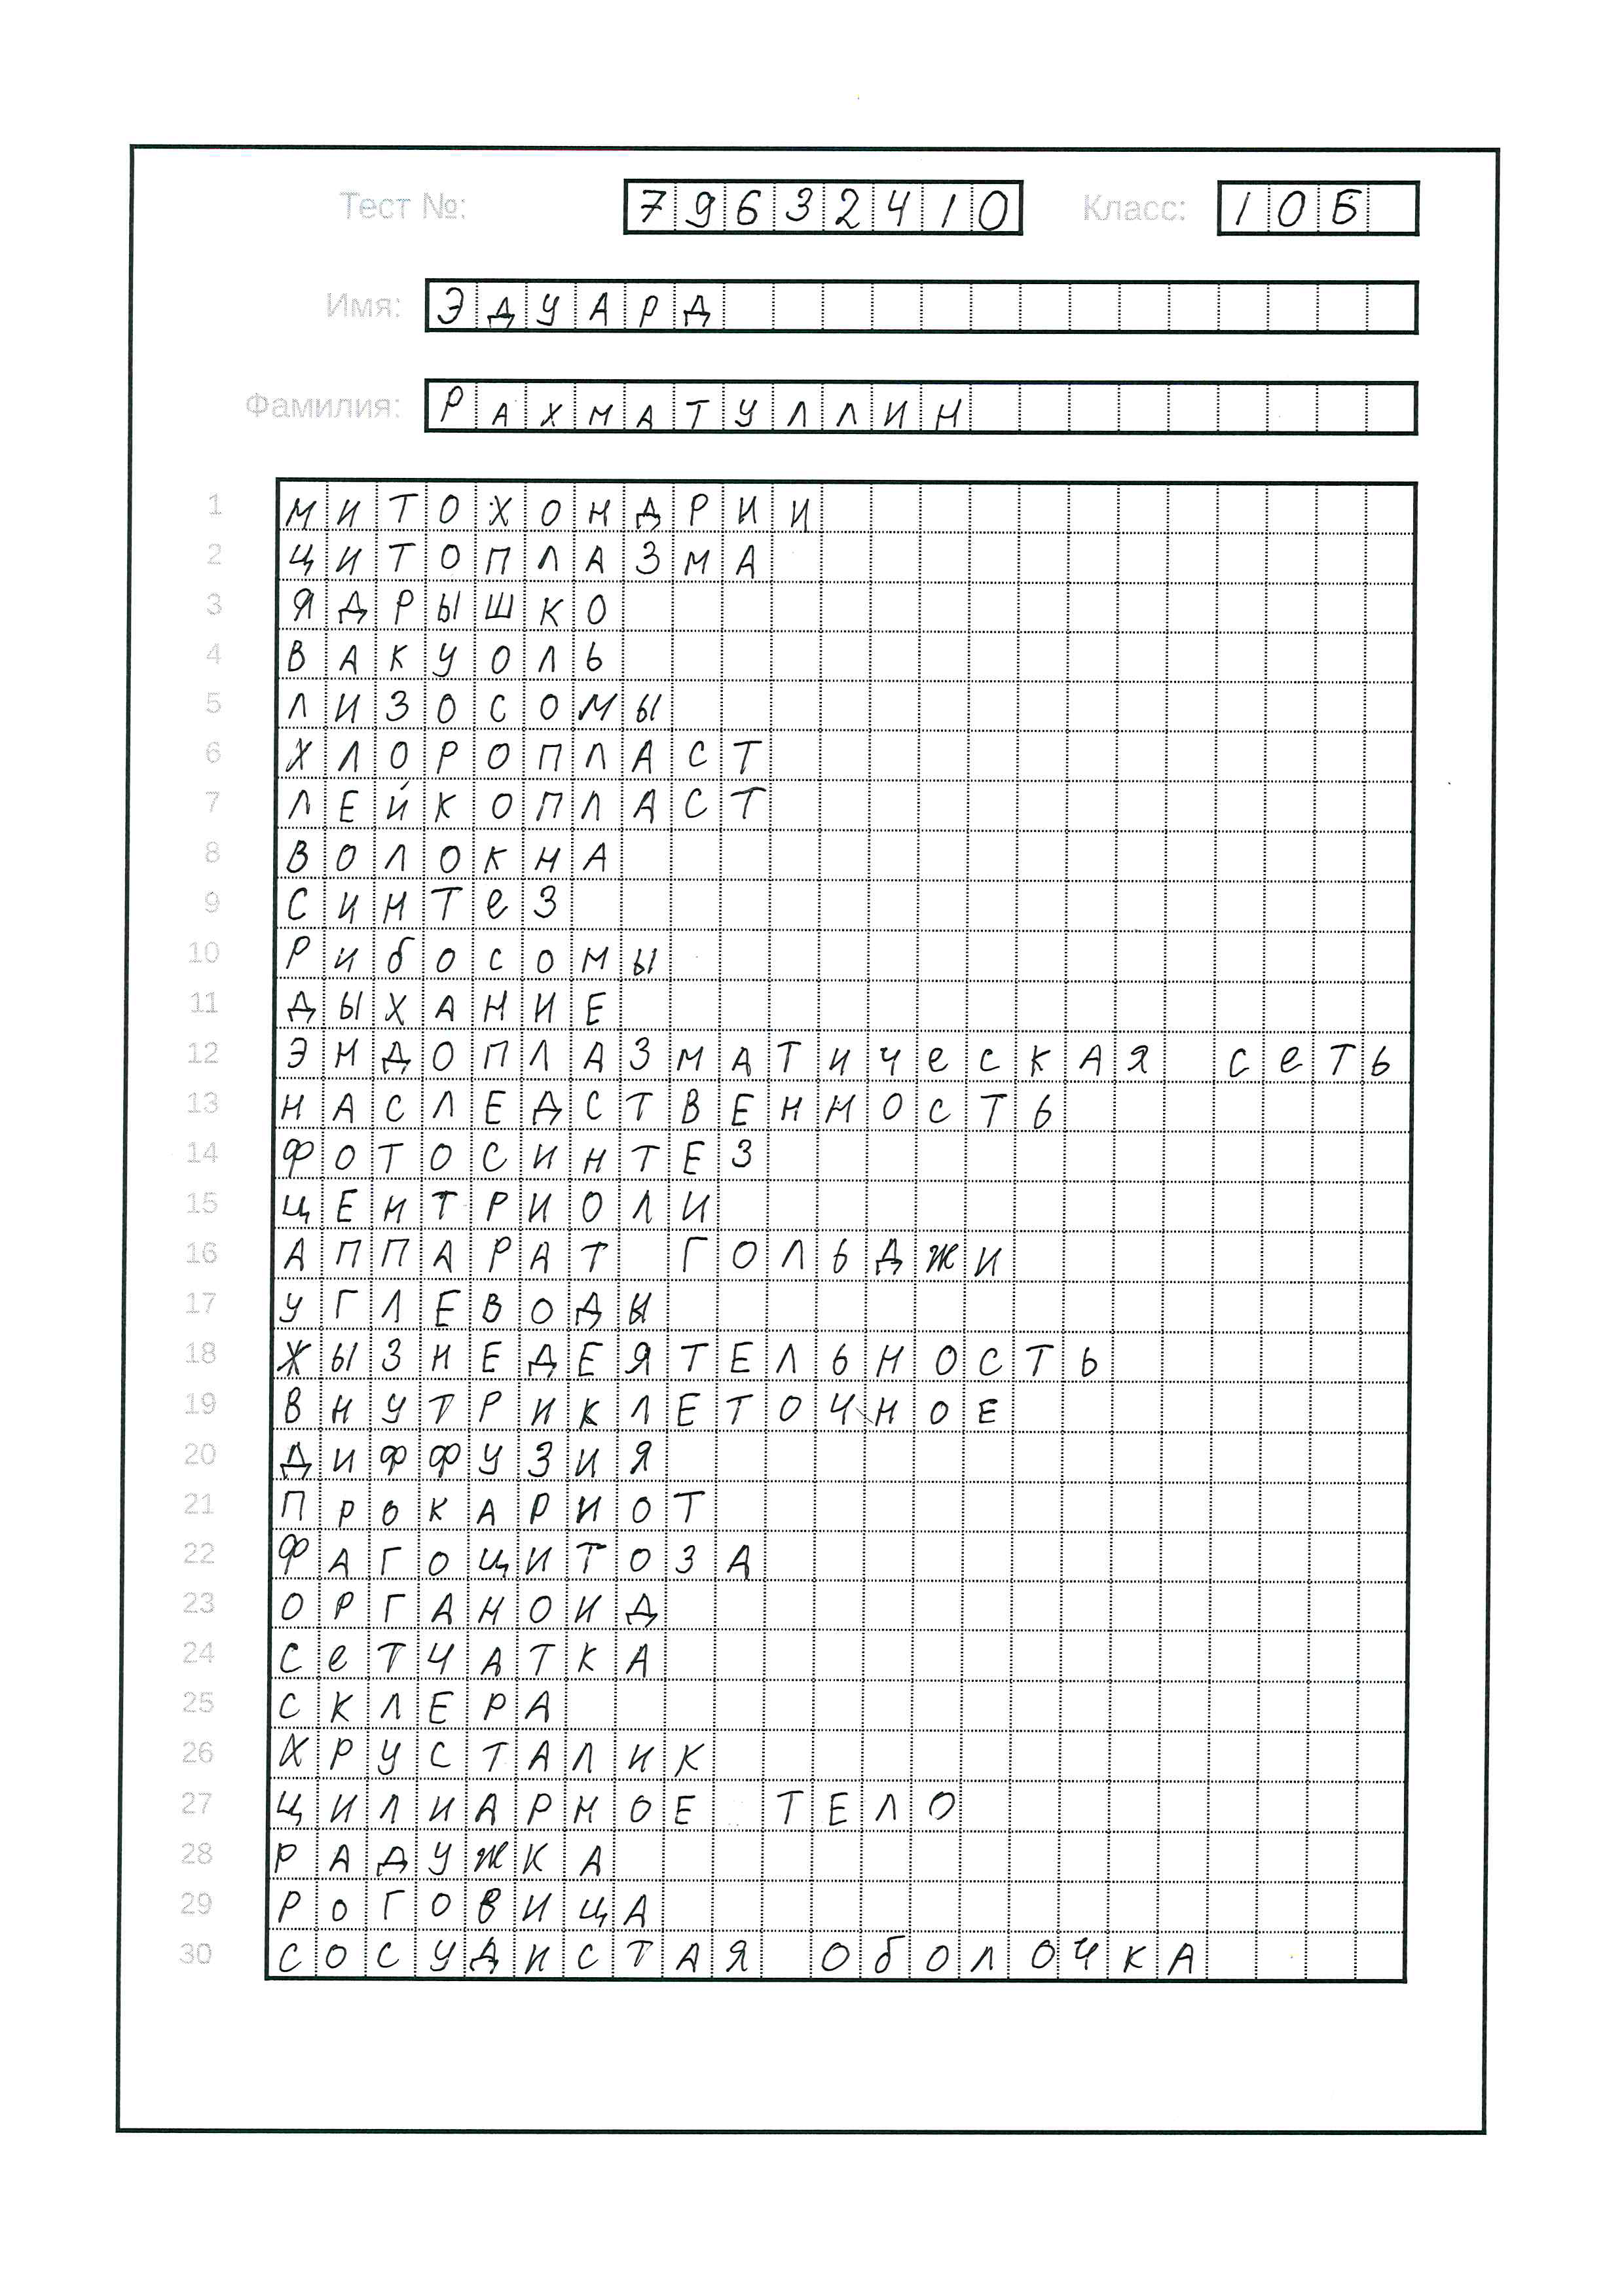 Тест №: 79632410 Класс: 10Б
Имя: ЭДУАРД
Фамилия: РАХМАТУЛЛИН
1 МИТОХОНДРИИ
2 ЦИТОПЛАЗМА
3 ЯДРЫШКО
4 ВАКУОЛЬ
5 ЛИЗОСОМЫ
6 ХЛОРОПЛАСТ
7 ЛЕЙКОПЛАСТ
8 ВОЛОКНА
9 СИНТЕЗ
10 РИБОСОМЫ
11 ДЫХАНИЕ
12 ЭНДОПЛАЗМАТИЧЕСКАЯ СЕТЬ
13 НАСЛЕДСТВЕННОСТЬ
14 ФОТОСИНТЕЗ
15 ЦЕНТРИОЛИ
16 АППАРАТ ГОЛЬДЖИ
17 УГЛЕВОДЫ
18 ЖЫЗНЕДЕЯТЕЛЬНОСТЬ
19 ВНУТРИКЛЕТОЧНОЕ
20 ДИФФУЗИЯ
21 ПРОКАРИОТ
22 ФАГОЦИТОЗА
23 ОРГАНОИД
24 СЕТЧАТКА
25 СКЛЕРА
26 ХРУСТАЛИК
27 ЦИЛИАРНОЕ ТЕЛО
28 РАДУЖКА
29 РОГОВИЦА
30 СОСУДИСТАЯ ОБОЛОЧКА